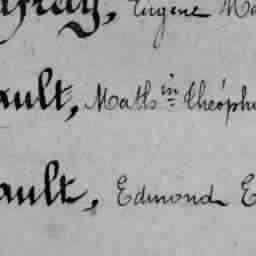 fray, Eugene Ma
ault, Math in Théoph
ault, Edmond E